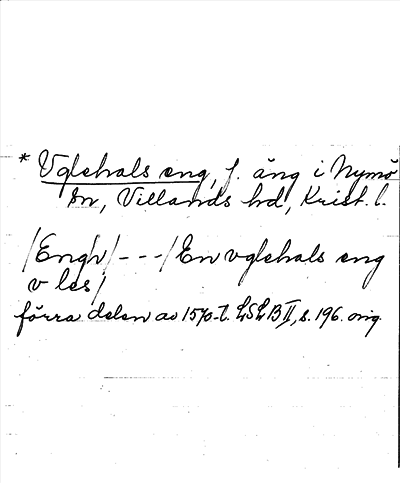 * Vglehals eng, f. äng i Nymö
sn, Villands hd, Krist. l.
/Engh/ - - - /En vglehals eng
v les/
förra delen av 1570-t. LSLB II, s. 196. orig.